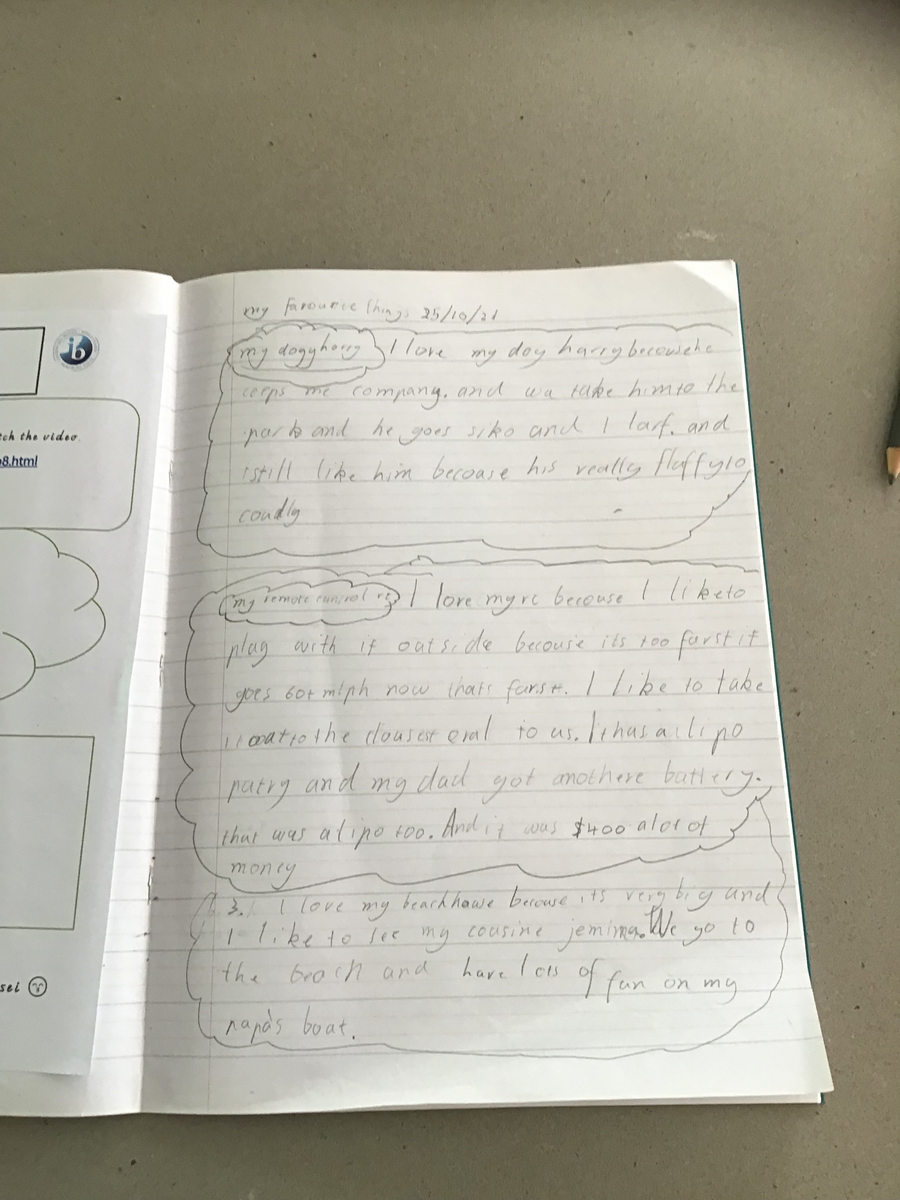 ib
tch the video.
8.html
sei
my favource things 25/10/21
my doggy harry I love my dog harry becouse he
ceeps me company. and we take him to the
park and he goes siko and I larf. and
i still like him becouse his really fluffy to
coudly
my remote control rc I love my rc becouse I like to
play with it outside becouse its too farst it
goes 60t mlph now thats farst. I like to take
it oat to the clousest oval to us. It has a lipo
patry and my dad got anothere battery.
that was a lipo too. And it was $400 alot of
money
3. I love my beachhowse becouse its very big and
I like to see my cousine jemima. We go to
the beach and have lots of fun on my
papa's boat.